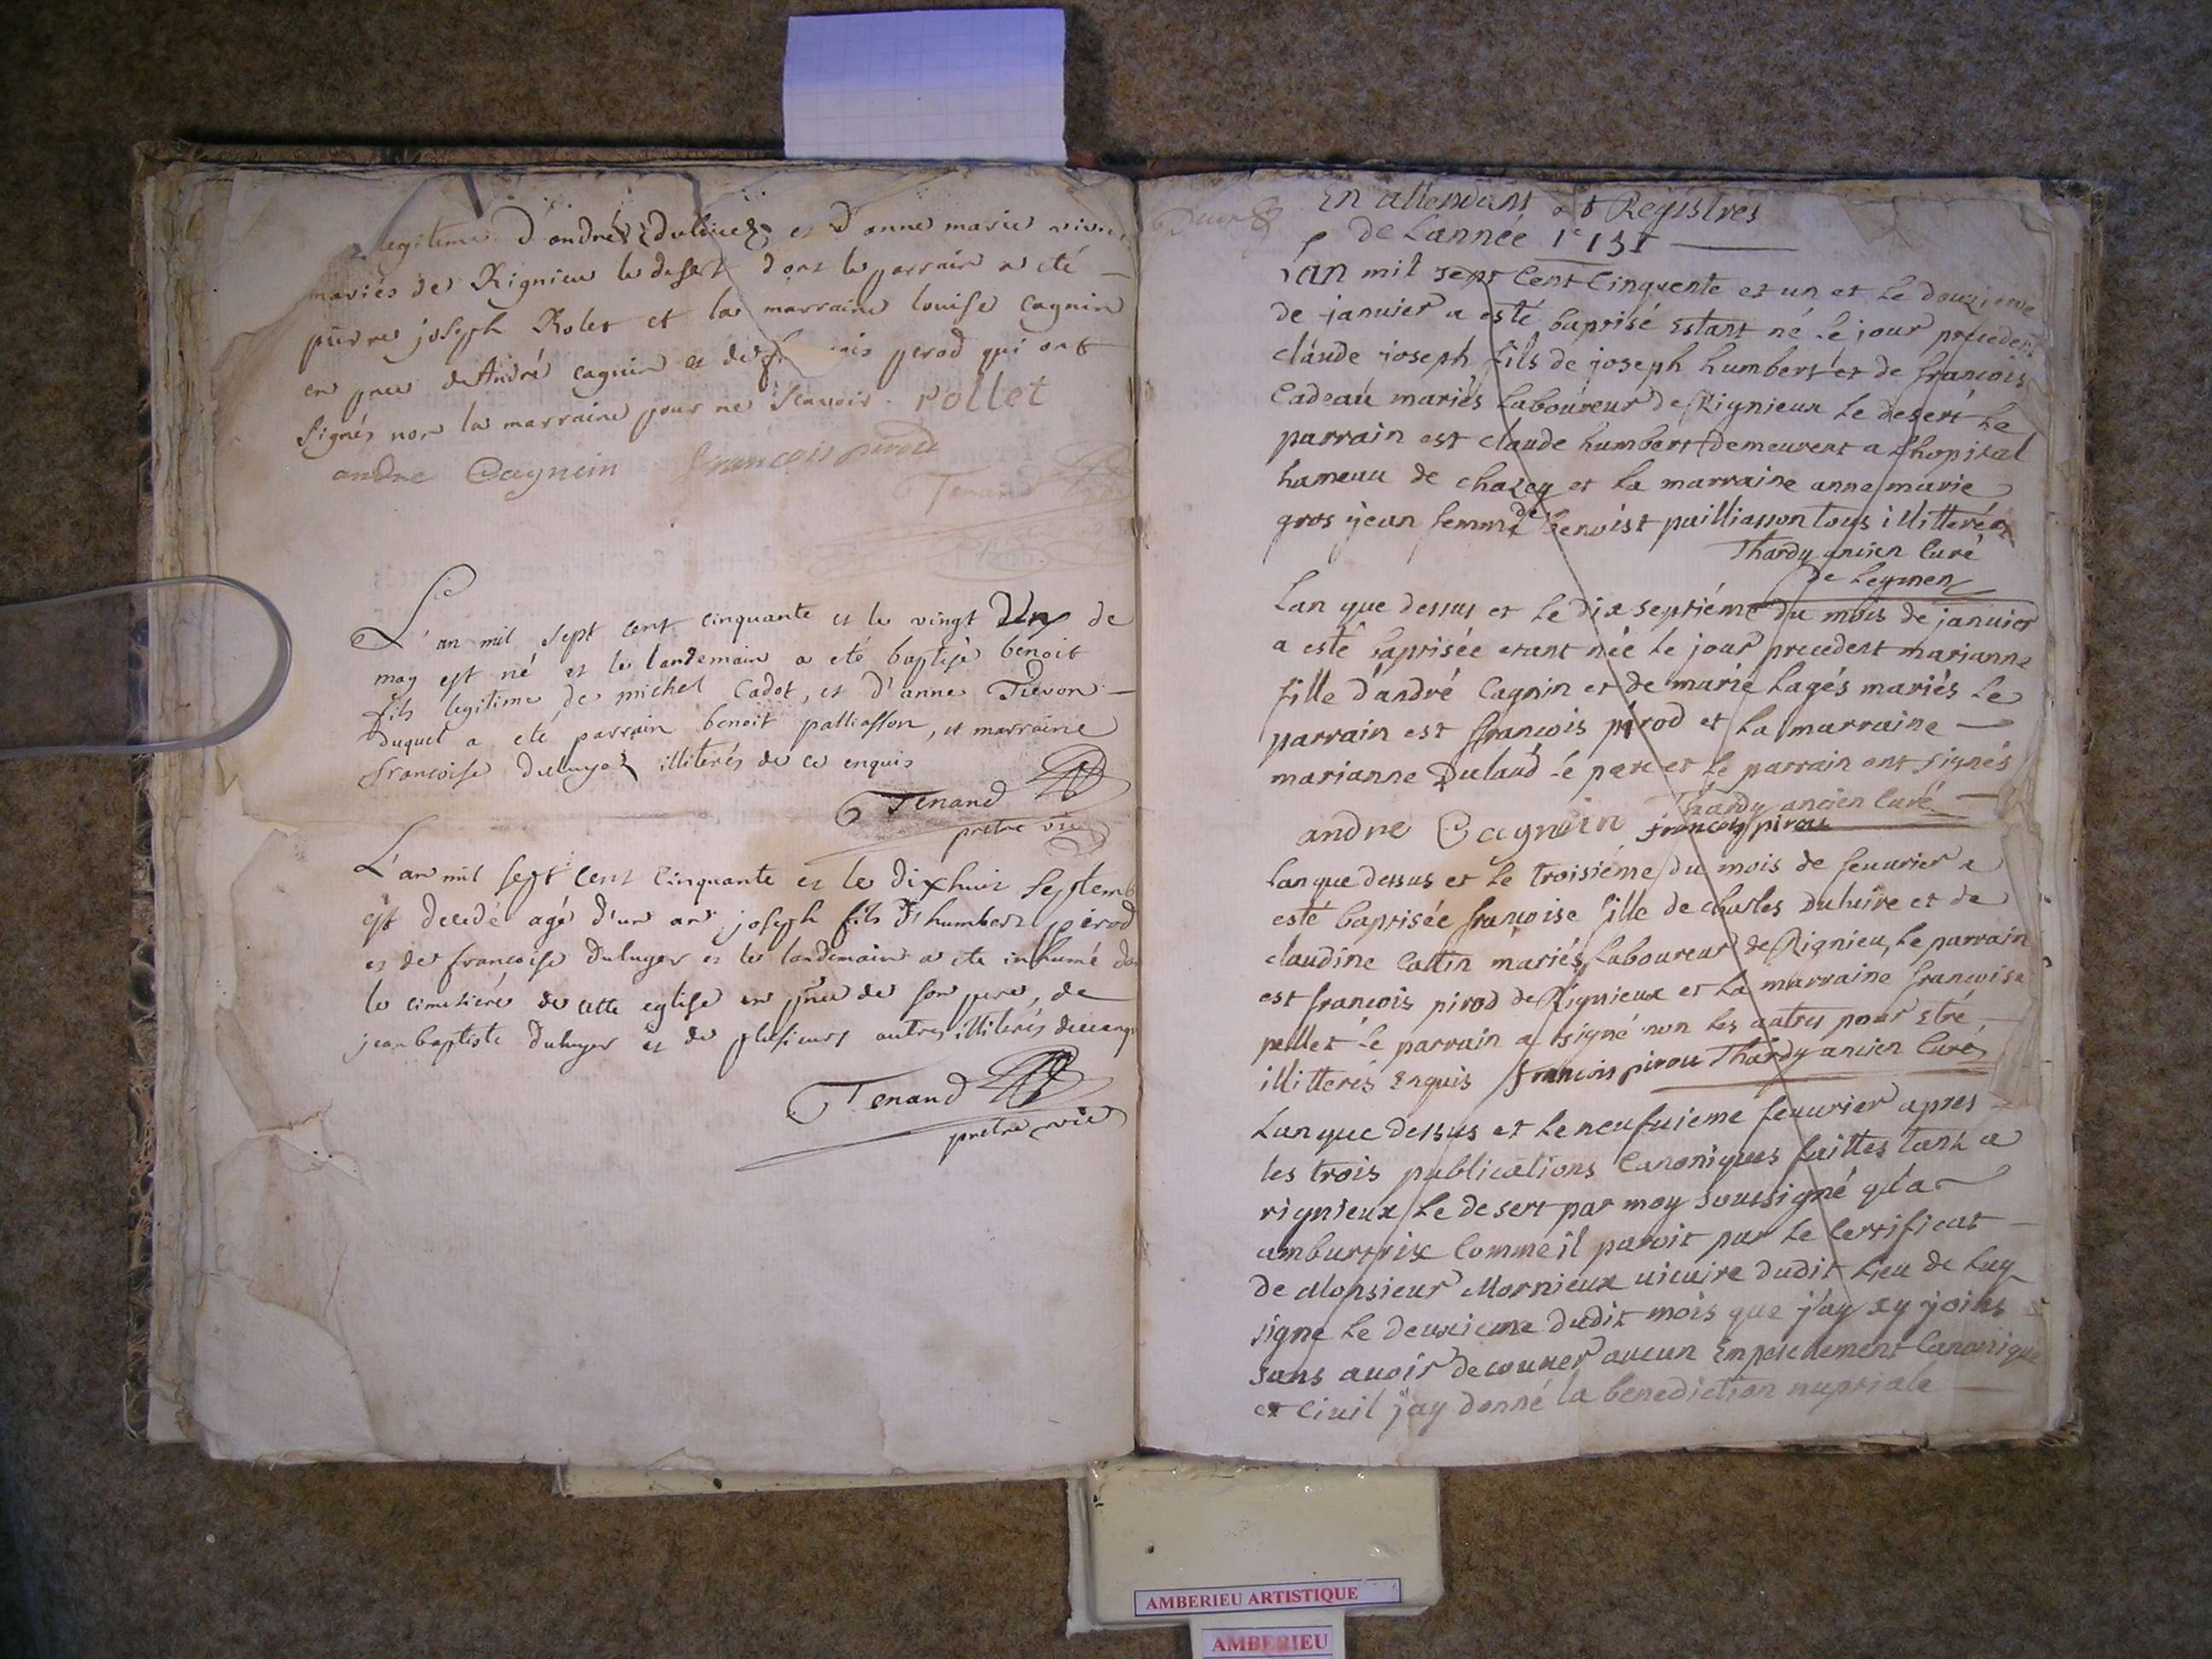 legitime d'andre et d'anne marie
mariés de Rignieu le desert dont le parrain a eté
pierre joseph Rolet et la marraine louise cagnin
en pnce d'André cagnin et de perod qui ont
signés non la marraine pour ne scavoir. Pollet
andre Cagnein francois pirod
Tenand
L'an mil sept cent cinquante et le vingt Un de
may est né et le landemain a eté baptisé benoit
fils legitime de michel Cadot, et d'anne
duquel a eté parrain benoit palliasson, et marraine
francoise illiterés de ce enquis
Tenand
pretre vic
L'an mil sept cent cinquante et le dixhuit septemb
est decedé agé d'un an joseph fils d'humbert perod
et de francoise duluyer et le landemain a ete inhumé
le cimetiére de cette eglise en pnce de son pere, de
jean baptiste duluyer et de plusieurs autres illiterés
Tenand
pretre vic
En attendant Registres
de L'année 1751
Lan mil sept Cent Cinquente et un et le douzieme
de januier a esté baptisé estant né le jour precedent
claude joseph fils de joseph humbert et de francois
Cadeau mariés Laboureur de Rignieux le desert le
parrain est claude humbert demeurent a Lhopital
hameau de chazey et la marraine anne marie
gros jean femme de benoist pailliasson tous illitterés
Thardy ancien Curé
de Leymen
Lan que dessus et le dix septiéme du mois de januier
a esté baptisée etant née le jour precedent marianne
fille d'andré Cagnin et de marie Lagés mariés le
parrain est francois pirod et la marraine
marianne Dulaud le pere et le parrain ont signés
Thardy ancien Curé
andre Cagnein francoy pirou
Lan que dessus et le troisiéme du mois de feuurier a
esté baptisée francoise fille de charles Duluire et de
claudine Cattin mariés, Laboureur de Rignieu, le parrain
est francois pirod de Rignieux et la marraine francoise
pellet le parrain a signé non les autres pour etre
illitterés enquis francois pirou Thardy ancien Curé
Lan que dessus et le neufuieme feuurier apres
les trois publications Canoniques faittes tant a
rignieux le desert par moy soussigné qu'a
amburtrix Comme il paroit par le Certificat
de Monsieur Mornieux uicaire dudit lieu de luy
signe le deuxieme dudit mois que j'ay xy joint
sans auoir decouuer aucun Empeschement Canonique
et Ciuil j'ay donné la benediction nuptiale
AMBERIEU ARTISTIQUE
AMBERIEU